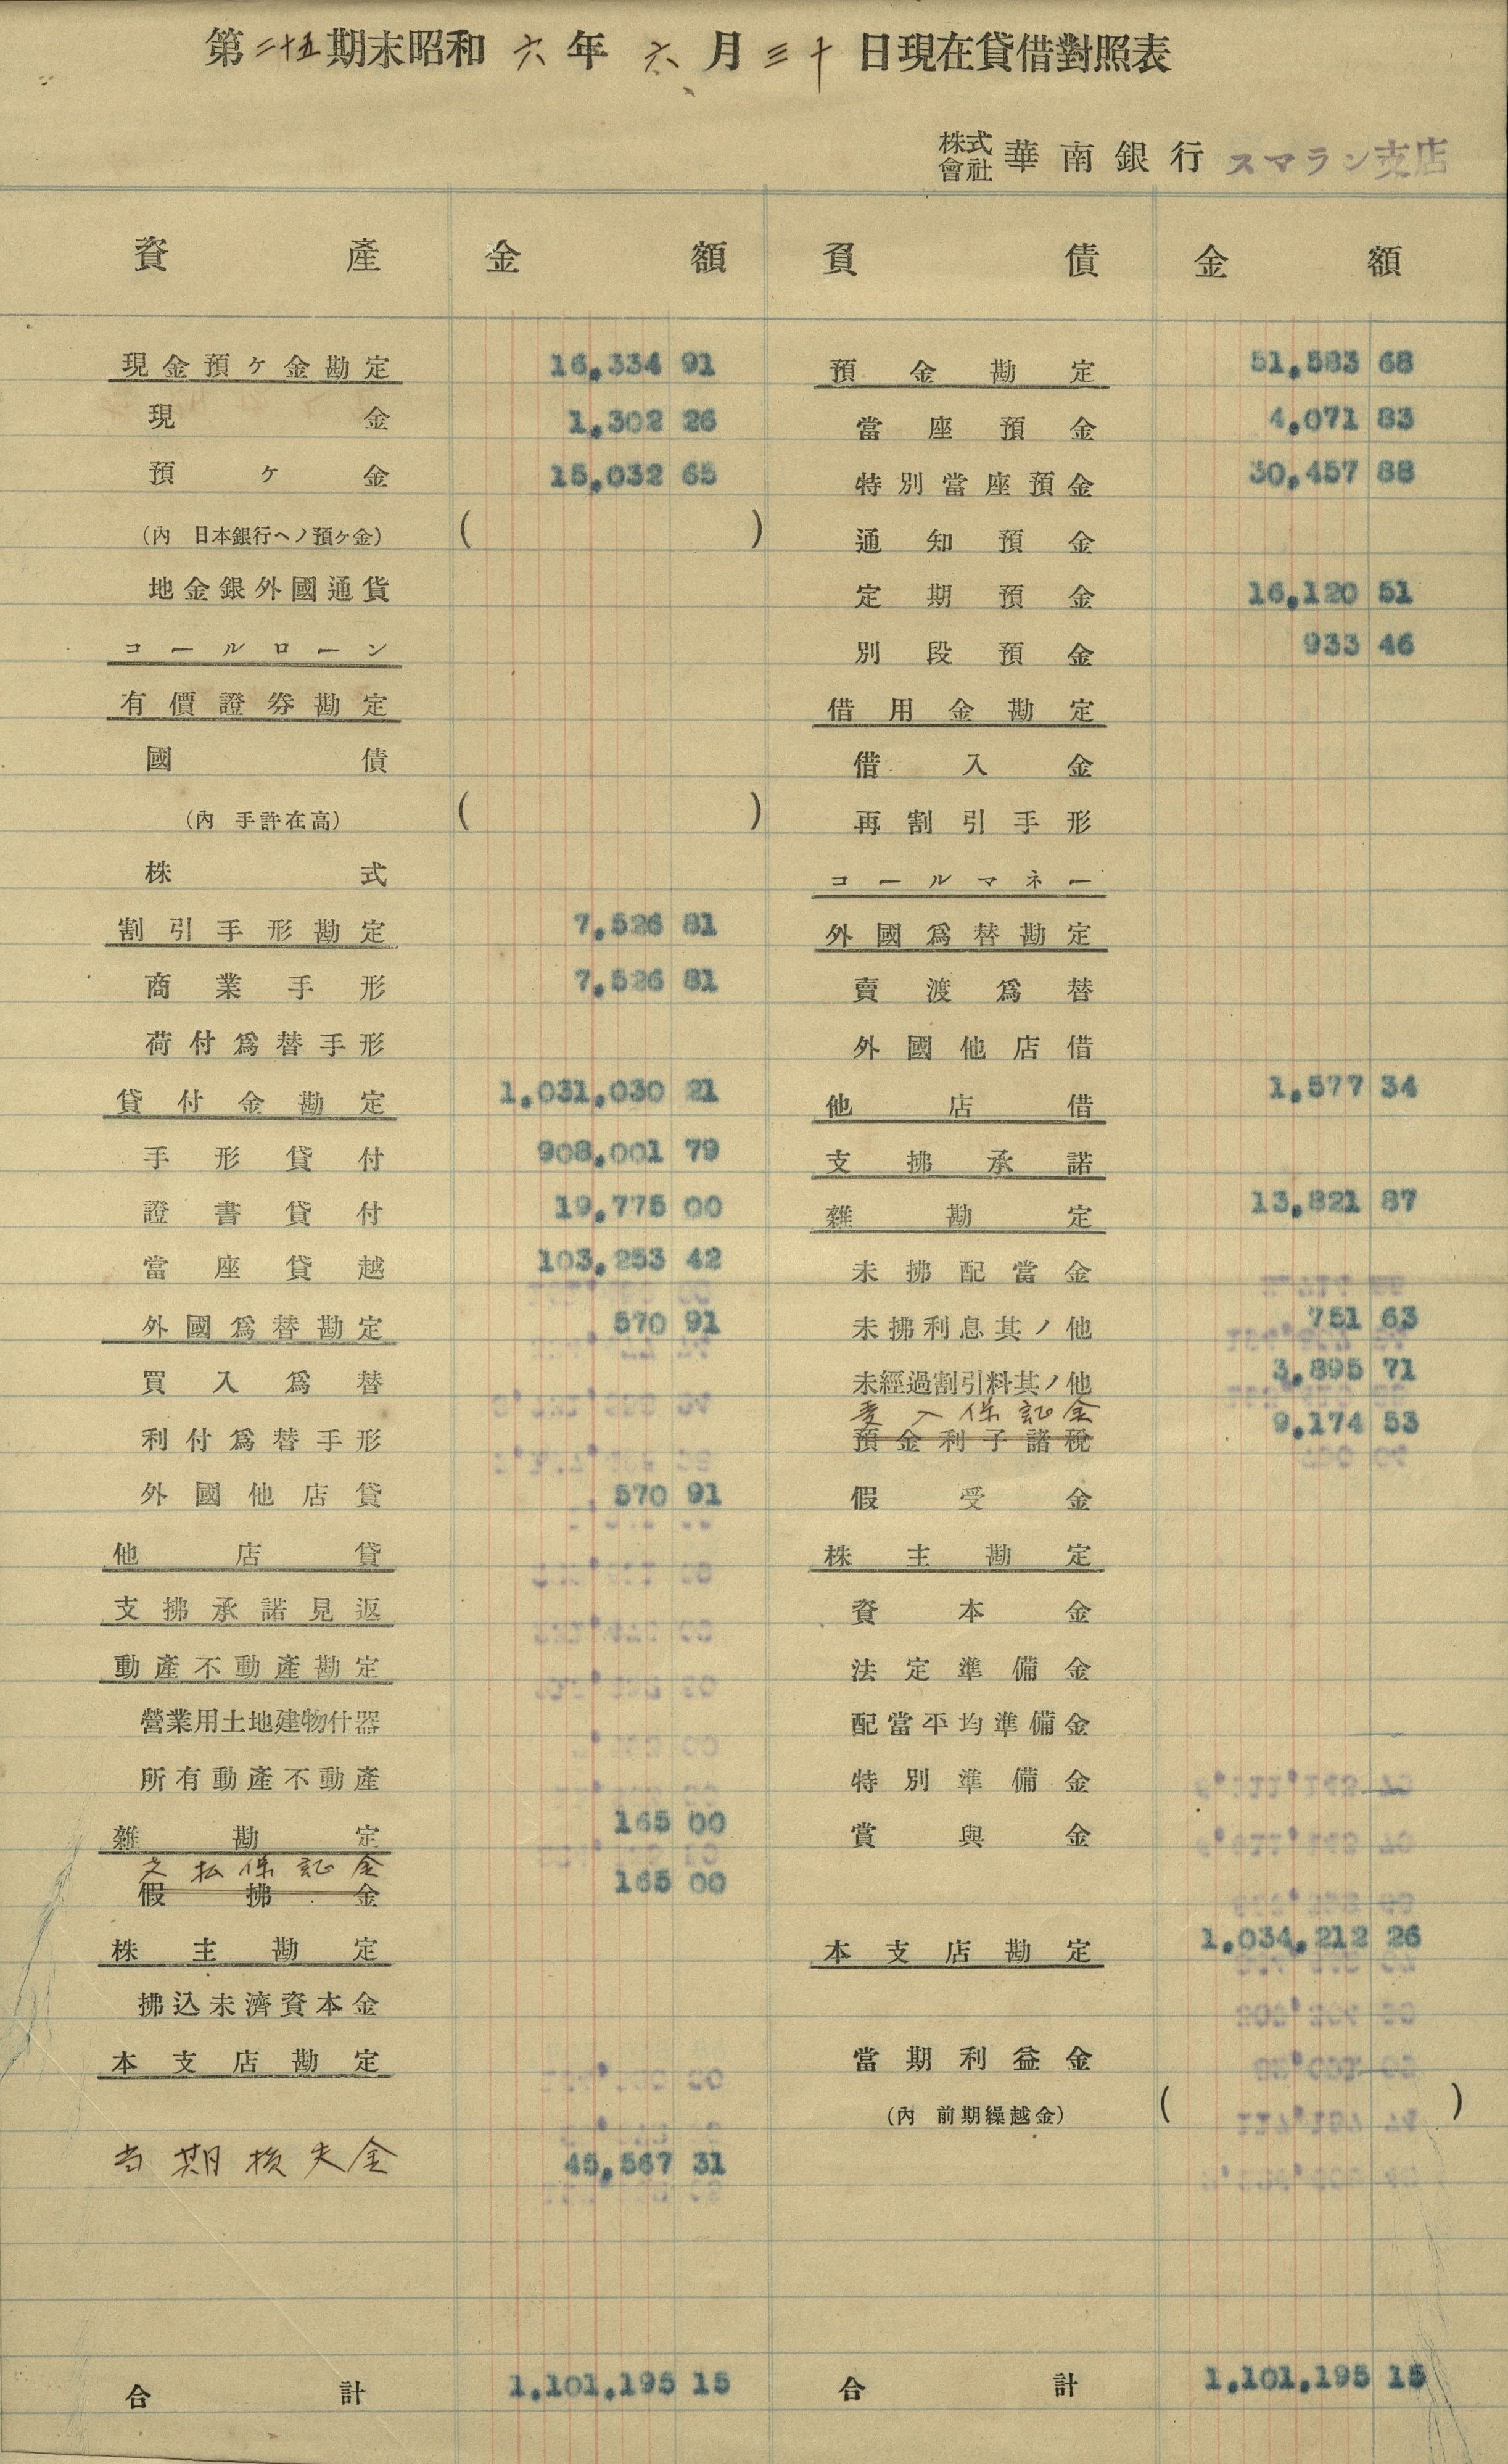 第二十五期末昭和六年六月三十日現在貸借對照表
株式會社 華南銀行 スマラン支店
資產 金額 負債 金額
現金預ケ金勘定 16,334 91 預金勘定 51,583 68
現金 1,302 26 當座預金 4,071 83
預ケ金 15,032 65 特別當座預金 30,457 88
(內 日本銀行ヘノ預ケ金) ( ) 通知預金
地金銀外國通貨 定期預金 16,120 51
コールローン 別段預金 933 46
有價證劵勘定 借用金勘定
國債 借入金
(內 手許在高) ( ) 再割引手形
株式 コールマネー
割引手形勘定 7,526 81 外國爲替勘定
商業手形 7,526 81 賣渡爲替
荷付爲替手形 外國他店借
貸付金勘定 1,031,030 21 他店借 1,577 34
手形貸付 908,001 79 支拂承諾
證書貸付 19,775 00 雜勘定 13,821 87
當座貸越 103,253 42 未拂配當金
外國爲替勘定 570 91 未拂利息其ノ他 751 63
買入爲替 未經過割引料其ノ他 3,895 71
受入保証金 9,174 53
利付爲替手形 預金利子諸稅
外國他店貸 570 91 假受金
他店貸 株主勘定
支拂承諾見返 資本金
動產不動產勘定 法定準備金
營業用土地建物什器 配當平均準備金
所有動產不動產 特別準備金
雜勘定 165 00 賞與金
支払保証金 165 00
假拂金
株主勘定 本支店勘定 1,034,212 26
拂込未濟資本金
本支店勘定 當期利益金
(內 前期繰越金) ( )
当期損失金 45,567 31
合計 1,101,195 15 合計 1,101,195 15